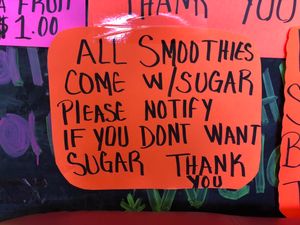 A FRUIT
$1.00
THANK YOU
ALL SMOOTHIES
COME W/SUGAR
PLEASE NOTIFY
IF YOU DONT WANT
SUGAR THANK
YOU